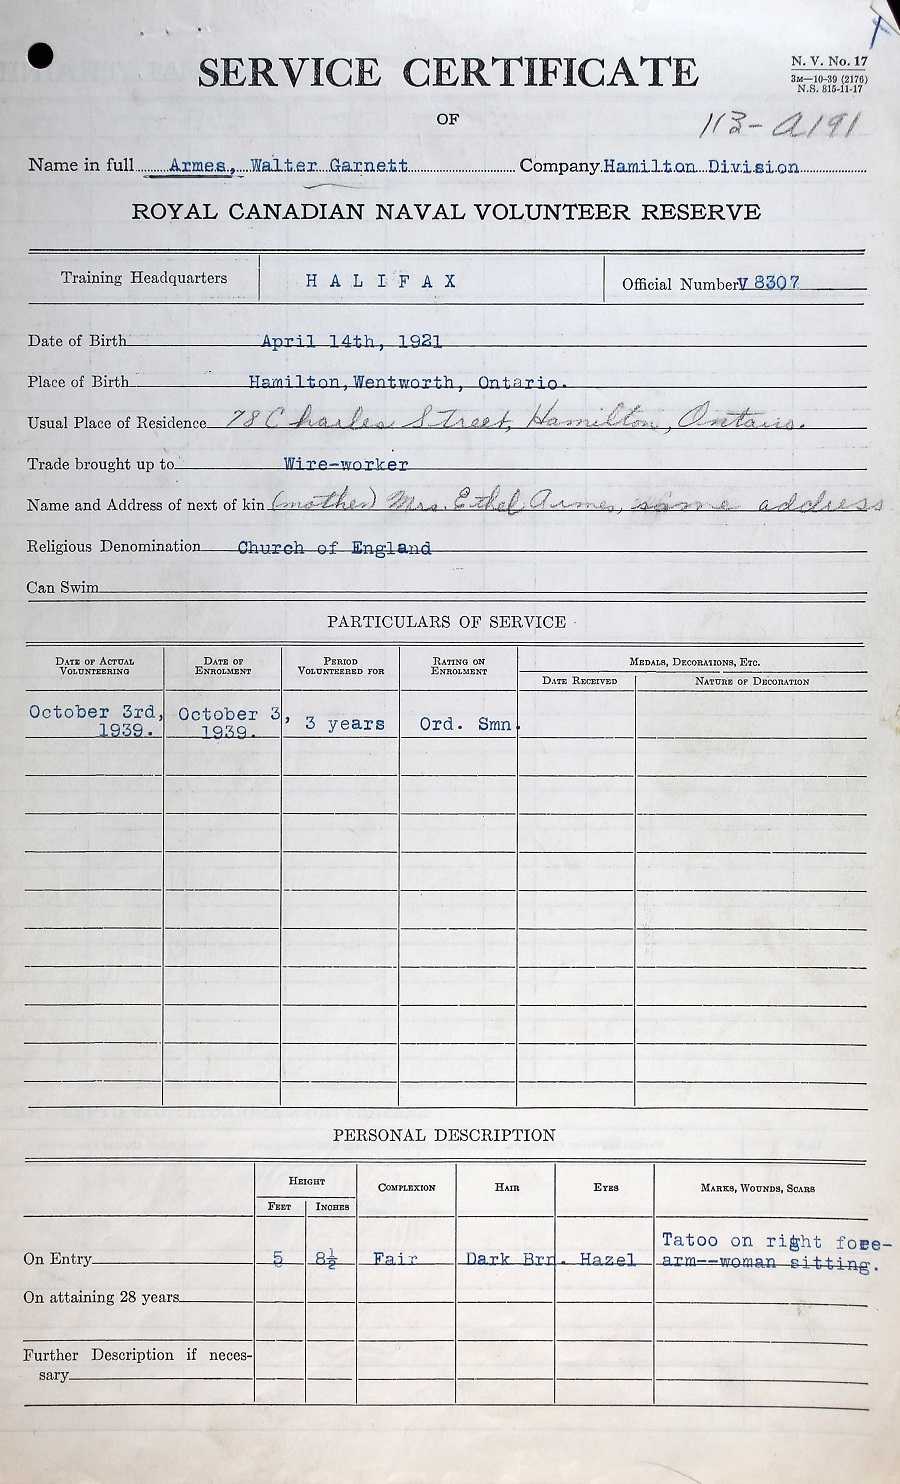 SERVICE CERTIFICATE
N. V. No. 17
3M—10-39 (2176)
N.S. 815-11-17
OF
113-A191
Name in full Armes, Walter Garnett Company Hamilton Division
ROYAL CANADIAN NAVAL VOLUNTEER RESERVE
Training Headquarters HALIFAX Official Number V 8307
Date of Birth April 14th, 1921
Place of Birth Hamilton, Wentworth, Ontario.
Usual Place of Residence 78 Charles Street, Hamilton, Ontario.
Trade brought up to Wire-worker
Name and Address of next of kin (mother) Mrs. Ethel Armes, same address
Religious Denomination Church of England
Can Swim
PARTICULARS OF SERVICE
DATE OF ACTUAL VOLUNTEERING DATE OF ENROLMENT PERIOD VOLUNTEERED FOR RATING ON ENROLMENT MEDALS, DECORATIONS, ETC.
DATE RECEIVED NATURE OF DECORATION
October 3rd, 1939. October 3, 1939. 3 years Ord. Smn.
PERSONAL DESCRIPTION
HEIGHT COMPLEXION HAIR EYES MARKS, WOUNDS, SCARS
FEET INCHES
On Entry 5 8½ Fair Dark Brn. Hazel Tatoo on right fore-
arm--woman sitting.
On attaining 28 years
Further Description if neces-
sary